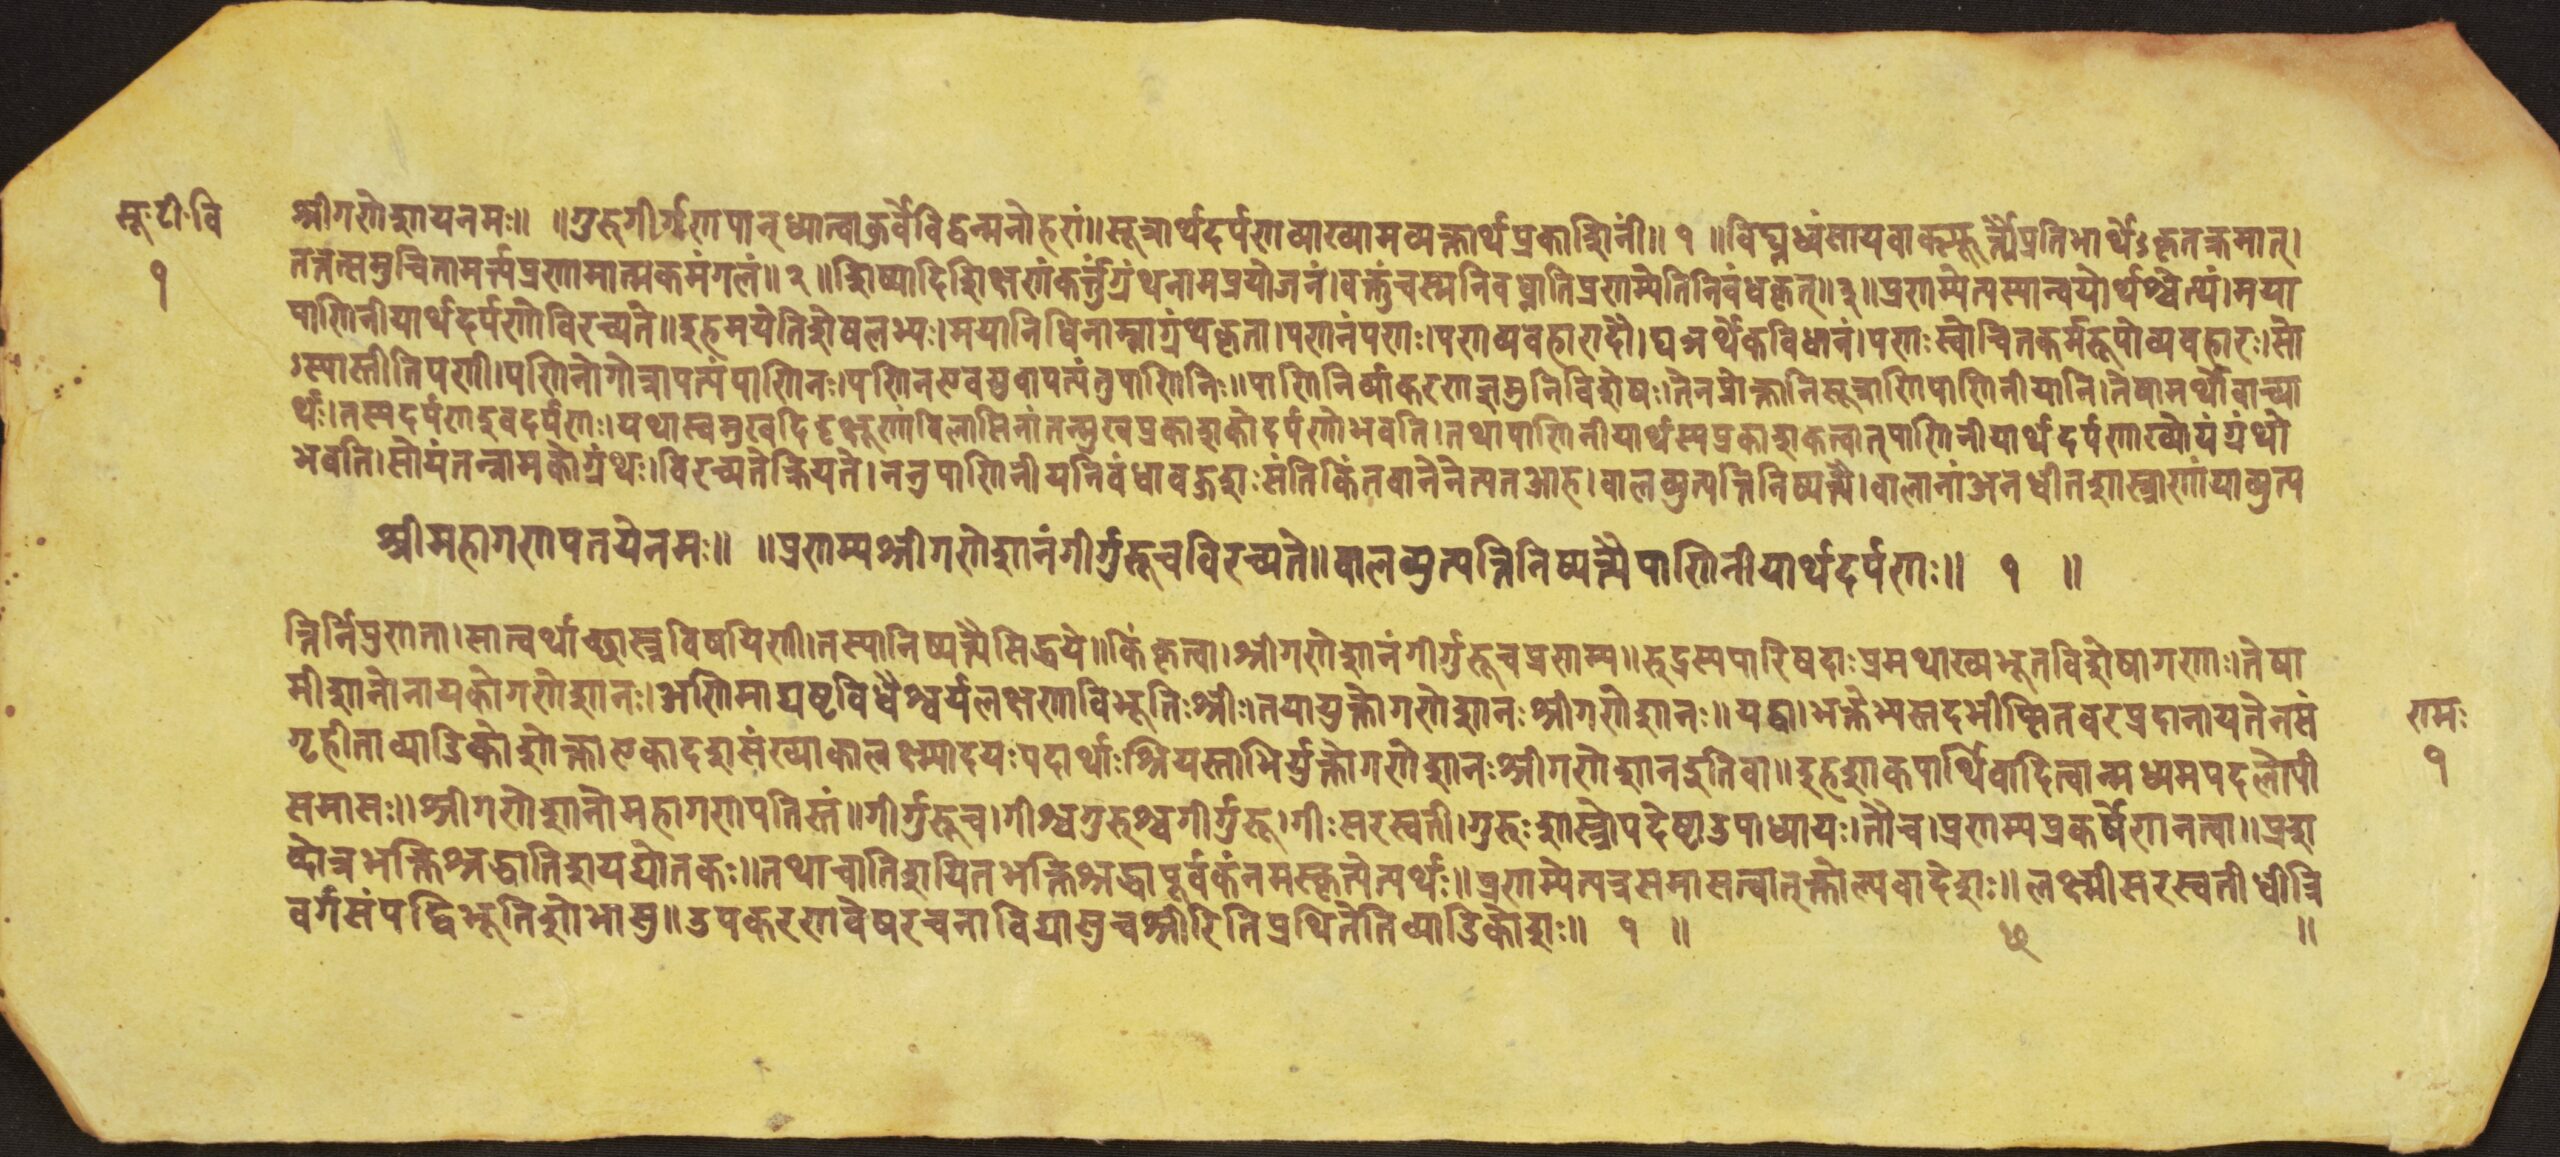 सूः टीः वि
१
श्रीगणेशायनमः॥ ॥गुरुगीर्गणपान्ध्यात्वाकुर्वेविद्वन्मनोहरां॥सूत्रार्थदर्पणव्याख्यामव्यक्तार्थप्रकाशिनीं॥ १ ॥विघ्नध्वंसायवाक्स्फूर्त्यैप्रतिभार्थेऽकृतक्रमात्।
तत्तत्समुचितामर्त्यप्रणामात्मकमंगलं॥ २ ॥शिष्यादिशिक्षणंकर्त्तुंग्रंथनामप्रयोजनं।वक्तुंचस्मनिबध्नातिप्रणम्येतिनिबंधकृत्॥३॥प्रणम्येत्यस्यान्वयोर्थश्चेत्यं।मया
पाणिनीयार्थदर्पणोविरच्यते॥इहमयेतिशेषलभ्यः।मयानिधिनाम्नाग्रंथकृता।पणनंपणः।पणव्यवहारादौ।घञर्थेकविधानं।पणःस्वोचितकर्मरूपोव्यवहारः।सो
ऽस्यास्तीतिपणी।पणिनोगोत्रापत्यंपाणिनः।पणिनस्यैवयुवापत्यंतुपाणिनिः॥पाणिनिर्व्याकरणज्ञमुनिविशेषः।तेनप्रोक्तानिसूत्राणिपाणिनीयानि।तेषामर्थोवाच्या
र्थः।तस्यदर्पणइवदर्पणः।यथास्वमुखदिदृक्षूणांविलासिनांतन्मुखप्रकाशकोदर्पणोभवति।तथापाणिनीयार्थस्यप्रकाशकत्वात्पाणिनीयार्थदर्पणाख्योयंग्रंथो
भवति।सोयंतन्नामकोग्रंथः।विरच्यतेक्रियते।ननुपाणिनीयनिबंधाबहुशःसंतिकिंतवानेनेत्यतआह।बालव्युत्पत्तिनिष्पत्त्यै।बालानांअनधीतशास्त्राणांयाव्युत्प
श्रीमहागणपतयेनमः॥ ॥प्रणम्यश्रीगणेशानंगीर्गुरूचविरच्यते॥बालव्युत्पत्तिनिष्पत्त्यैपाणिनीयार्थदर्पणः॥ १ ॥
त्तिर्निपुणता।सात्वर्थाच्छास्त्रविषयिणी।तस्यानिष्पत्त्यैसिद्धये॥किंकृत्वा।श्रीगणेशानंगीर्गुरूचप्रणम्य॥रुद्रस्यपारिषदाःप्रमथाख्यभूतविशेषागणाः।तेषा
मीशानोनायकोगणेशानः।अणिमाद्यष्टविधैश्वर्यलक्षणाविभूतिःश्रीः।तयायुक्तोगणेशानःश्रीगणेशानः॥यद्वा।भक्तेभ्यस्तदभीप्सितवरप्रदानायतेनसं
गृहीताव्याडिकोशोक्ताएकादशसंख्याकालक्ष्म्यादयःपदार्थाःश्रियस्ताभिर्युक्तोगणेशानःश्रीगणेशानइतिवा॥इहशाकपार्थिवादित्वान्मध्यमपदलोपी
समासः॥श्रीगणेशानोमहागणपतिस्तं॥गीर्गुरूच।गीश्चगुरुश्चगीर्गुरू।गीःसरस्वती।गुरुःशास्त्रोपदेष्टाउपाध्यायः।तौच।प्रणम्यप्रकर्षेणनत्वा॥प्रश
ब्दोत्रभक्तिश्रद्धातिशयद्योतकः॥तथाचातिशयितभक्तिश्रद्धापूर्वकंनमस्कृत्येत्यर्थः॥प्रणम्येत्यत्रसमासत्वात्क्तोल्यबादेशः॥लक्ष्मीसरस्वतीधीत्रि
वर्गसंपद्विभूतिशोभासु॥उपकरणवेषरचनाविद्यासुचश्रीरितिप्रथितेतिव्याडिकोशः॥ १ ॥ ॥
रामः
१